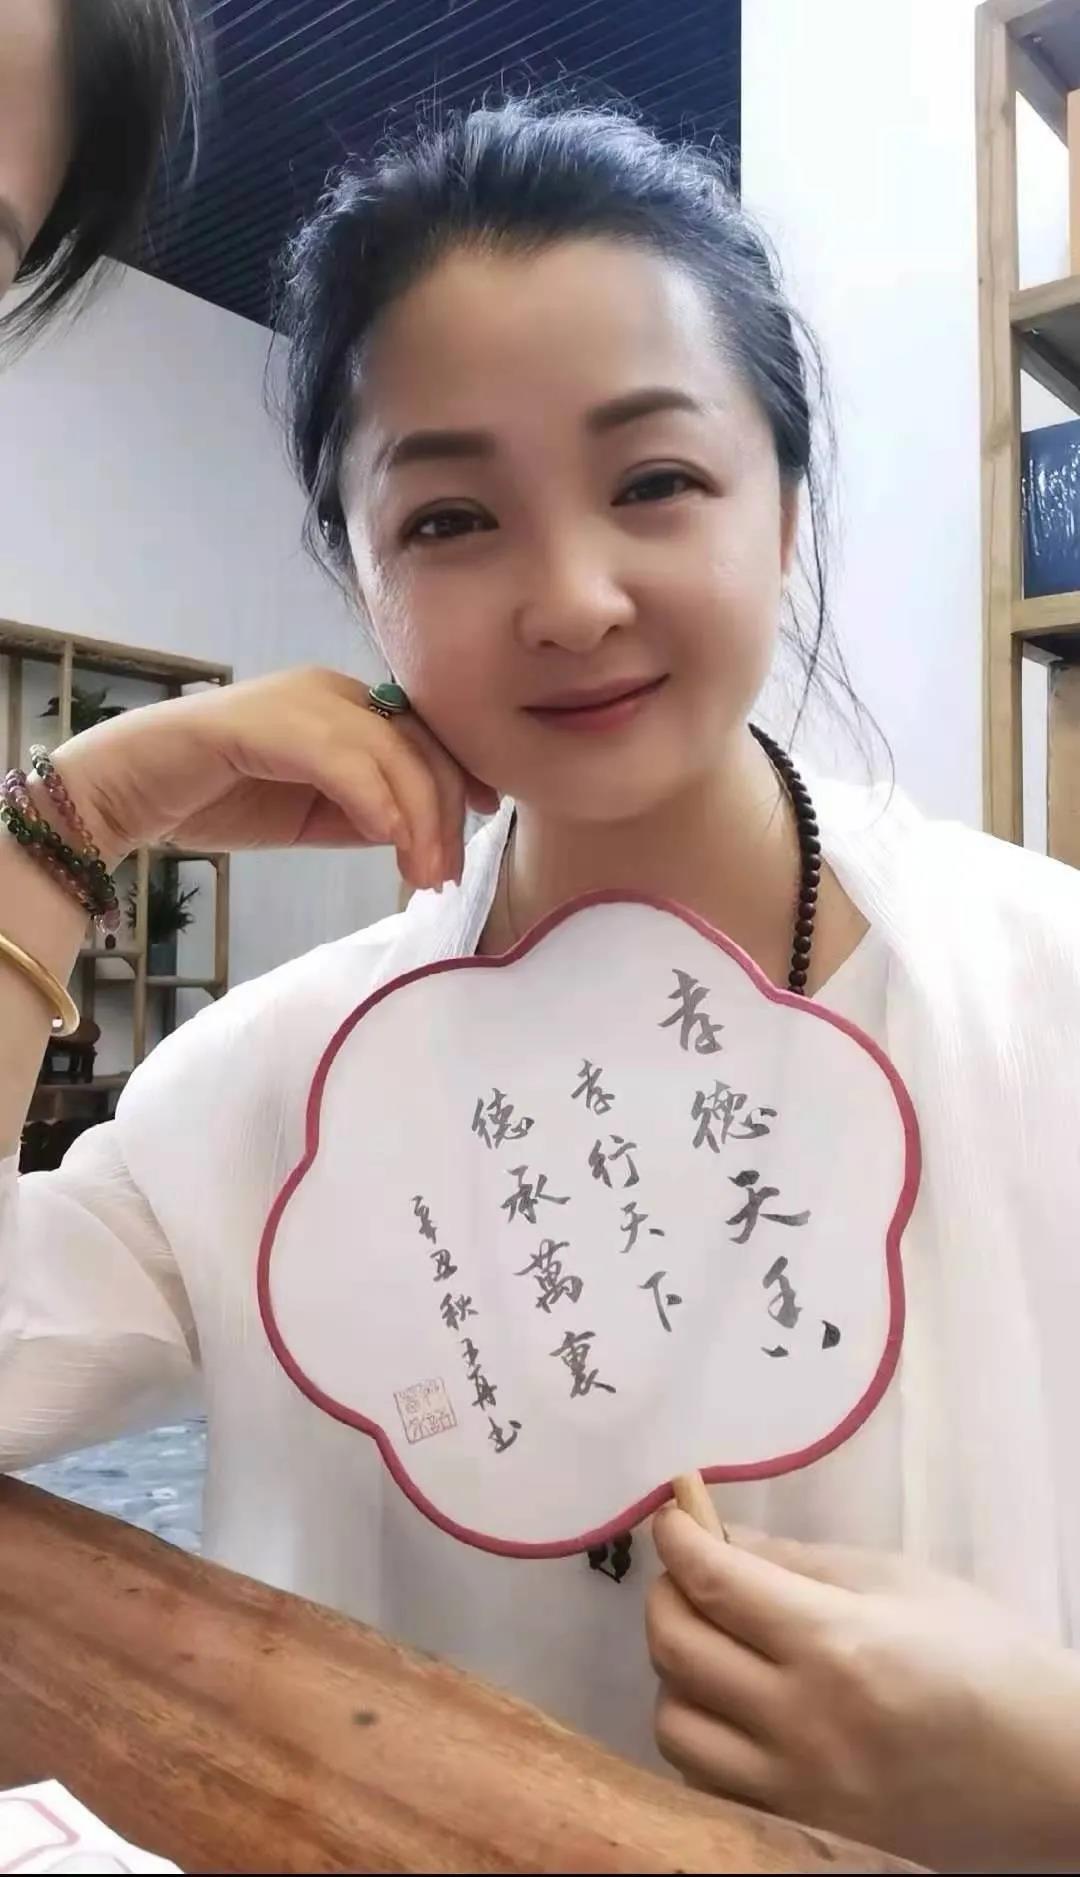 孝德天香
孝行天下
德承萬裏
辛丑秋王舟书